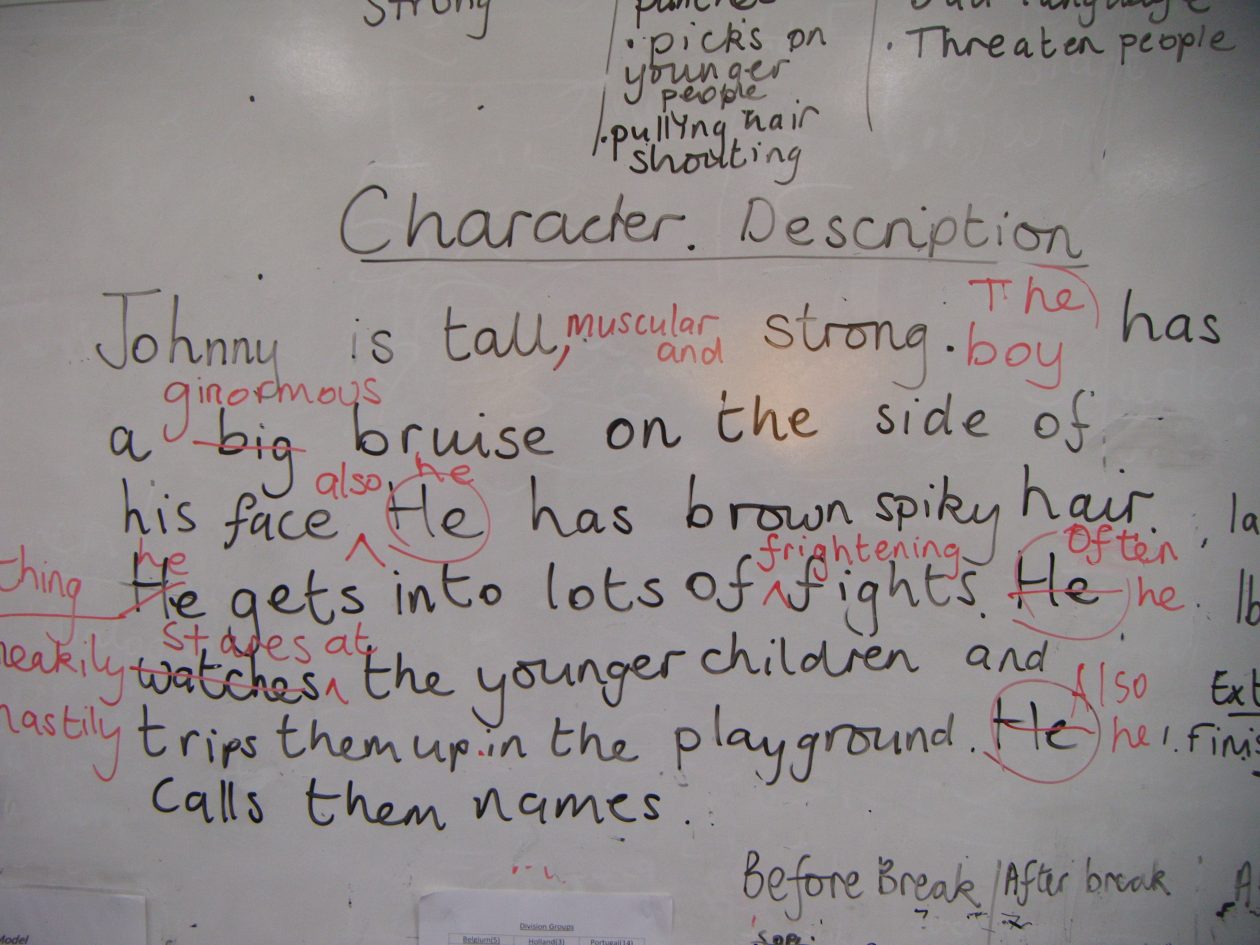 strong
• picks on
younger
people
• pullyng hair
shouting
bad language
• Threaten people
Character. Description
Johnny is tall, muscular and strong. The boy has
ginormous
a big bruise on the side of
also he
his face ^ He has brown spiky hair.
he frightening Often
thing He gets into lots of ^ fights. He he
stares at
neakily watches ^ the younger children and
Also
nastily trips them up in the playground. He he
Calls them names.
Ext
Finis
Before Break After break
Division Groups
Belgium(5) Holland(3) Portugal(14)
Model